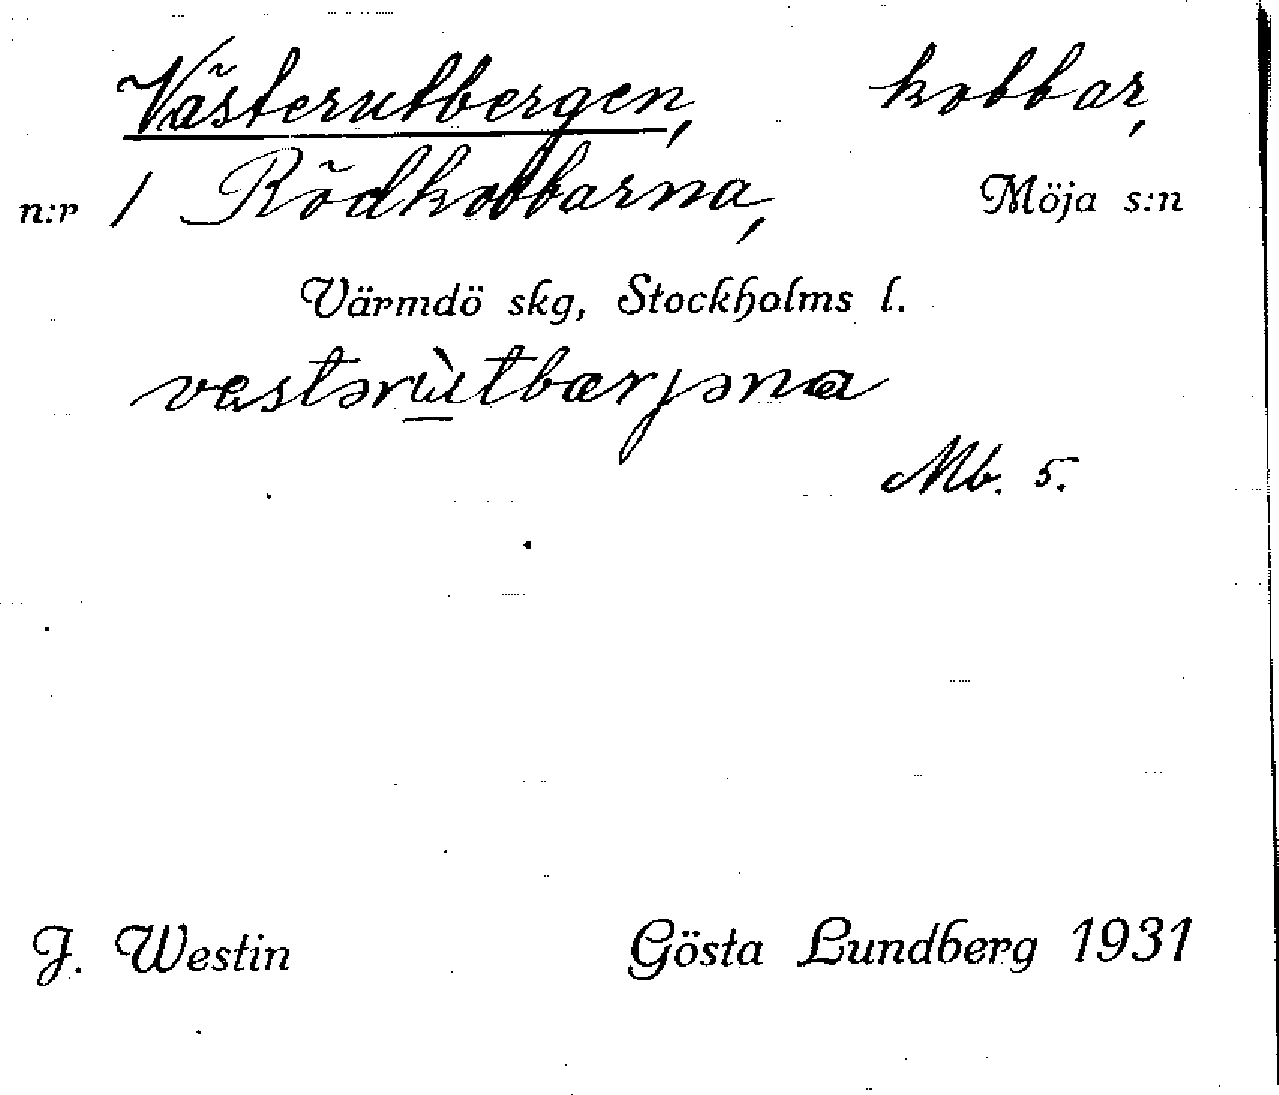 Västerutbergen, kobbar,
n:r 1 Rödkobbarna, Möja s:n
Värmdö skg, Stockholms l.
vestərùtbærjəna
Mb. 5.
J. Westin Gösta Lundberg 1931